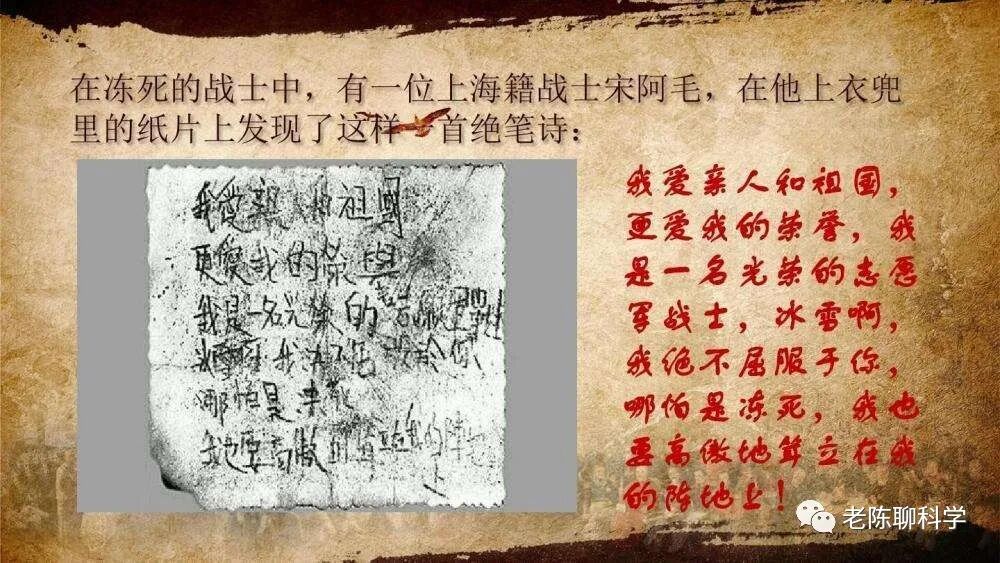 在冻死的战士中，有一位上海籍战士宋阿毛，在他上衣兜
里的纸片上发现了这样一首绝笔诗：
我愛親人和祖國
更愛我的榮
我是一名光榮的志願
我 你
哪怕是凍死
我也要高傲 我的陣地
上
我爱亲人和祖国，
更爱我的荣誉，我
是一名光荣的志愿
军战士，冰雪啊，
我绝不屈服于你，
哪怕是冻死，我也
要高傲地耸立在我
的阵地上！
老陈聊科学